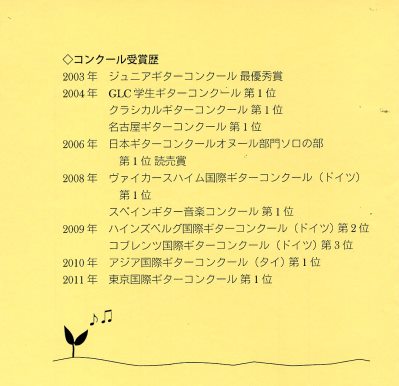 ◇コンクール受賞歴
2003年 ジュニアギターコンクール 最優秀賞
2004年 GLC学生ギターコンクール 第1位
クラシカルギターコンクール 第1位
名古屋ギターコンクール 第1位
2006年 日本ギターコンクールオヌール部門ソロの部
第1位 読売賞
2008年 ヴァイカースハイム国際ギターコンクール（ドイツ）
第1位
スペインギター音楽コンクール 第1位
2009年 ハインズベルグ国際ギターコンクール（ドイツ）第2位
コブレンツ国際ギターコンクール（ドイツ）第3位
2010年 アジア国際ギターコンクール（タイ）第1位
2011年 東京国際ギターコンクール 第1位